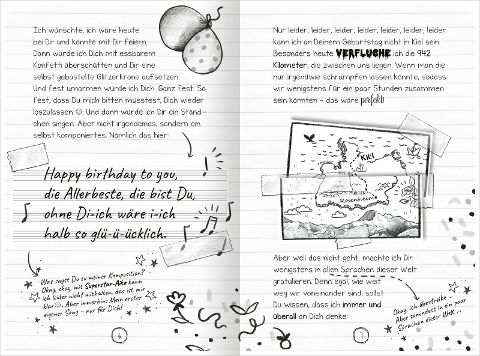 Ich wünschte, ich wäre heute
bei Dir und könnte mit Dir feiern.
Dann würde ich Dich mit essbarem
Konfetti überschütten und Dir eine
selbst gebastelte Glitzerkrone aufsetzen.
Und fest umarmen würde ich Dich. Ganz fest. So
fest, dass Du mich bitten müsstest, Dich wieder
loszulassen ☺. Und dann würde ich Dir ein Stand-
chen singen. Aber nicht irgendeines, sondern ein
selbst komponiertes. Nämlich das hier:
Happy birthday to you,
die Allerbeste, die bist Du,
ohne Di-ich wäre i-ich
halb so glü-ü-ücklich.
Was sagst Du zu meiner Komposition?
Okay, okay, mit Superstar-Aiko kann
ich leider nicht mithalten, das ist mir
klar ☺. Aber immerhin: Mein erster
eigener Song – nur für Dich!
6
Nur leider, leider, leider, leider, leider, leider, leider
kann ich an Deinem Geburtstag nicht in Kiel sein.
Besonders heute VERFLUCHE ich die 942
Kilometer, die zwischen uns liegen. Wenn man die
nur irgendwie schrumpfen lassen könnte, sodass
wir wenigstens für ein paar Stunden zusammen
sein könnten – das wäre perfekt!
Kiel
Rosenheim
Aber weil das nicht geht, möchte ich Dir
wenigstens in allen Sprachen dieser Welt
gratulieren. Denn egal, wie weit
weg wir voneinander sind, sollst
Du wissen, dass ich immer und
überall an Dich denke:
Okay, ich übertreibe ...
Aber zumindest in ein paar
Sprachen dieser Welt ...
7